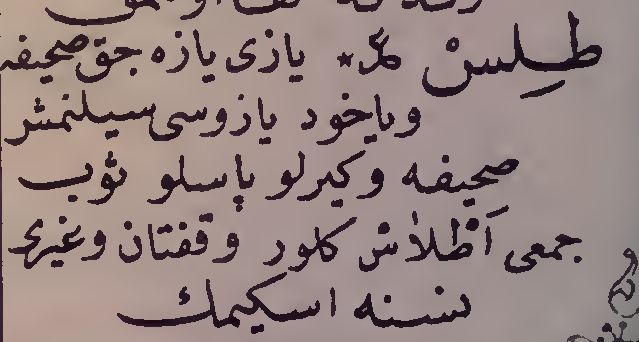 طِلِسْ يازى يازه جق صحيفه
وياخود يازوسى سيلنمش
صحِيفه وكيرلو پاسلو ثوب
جمعى اَطْلَاسْ كلور وقفتان وغيرى
نسنه اسكيمك